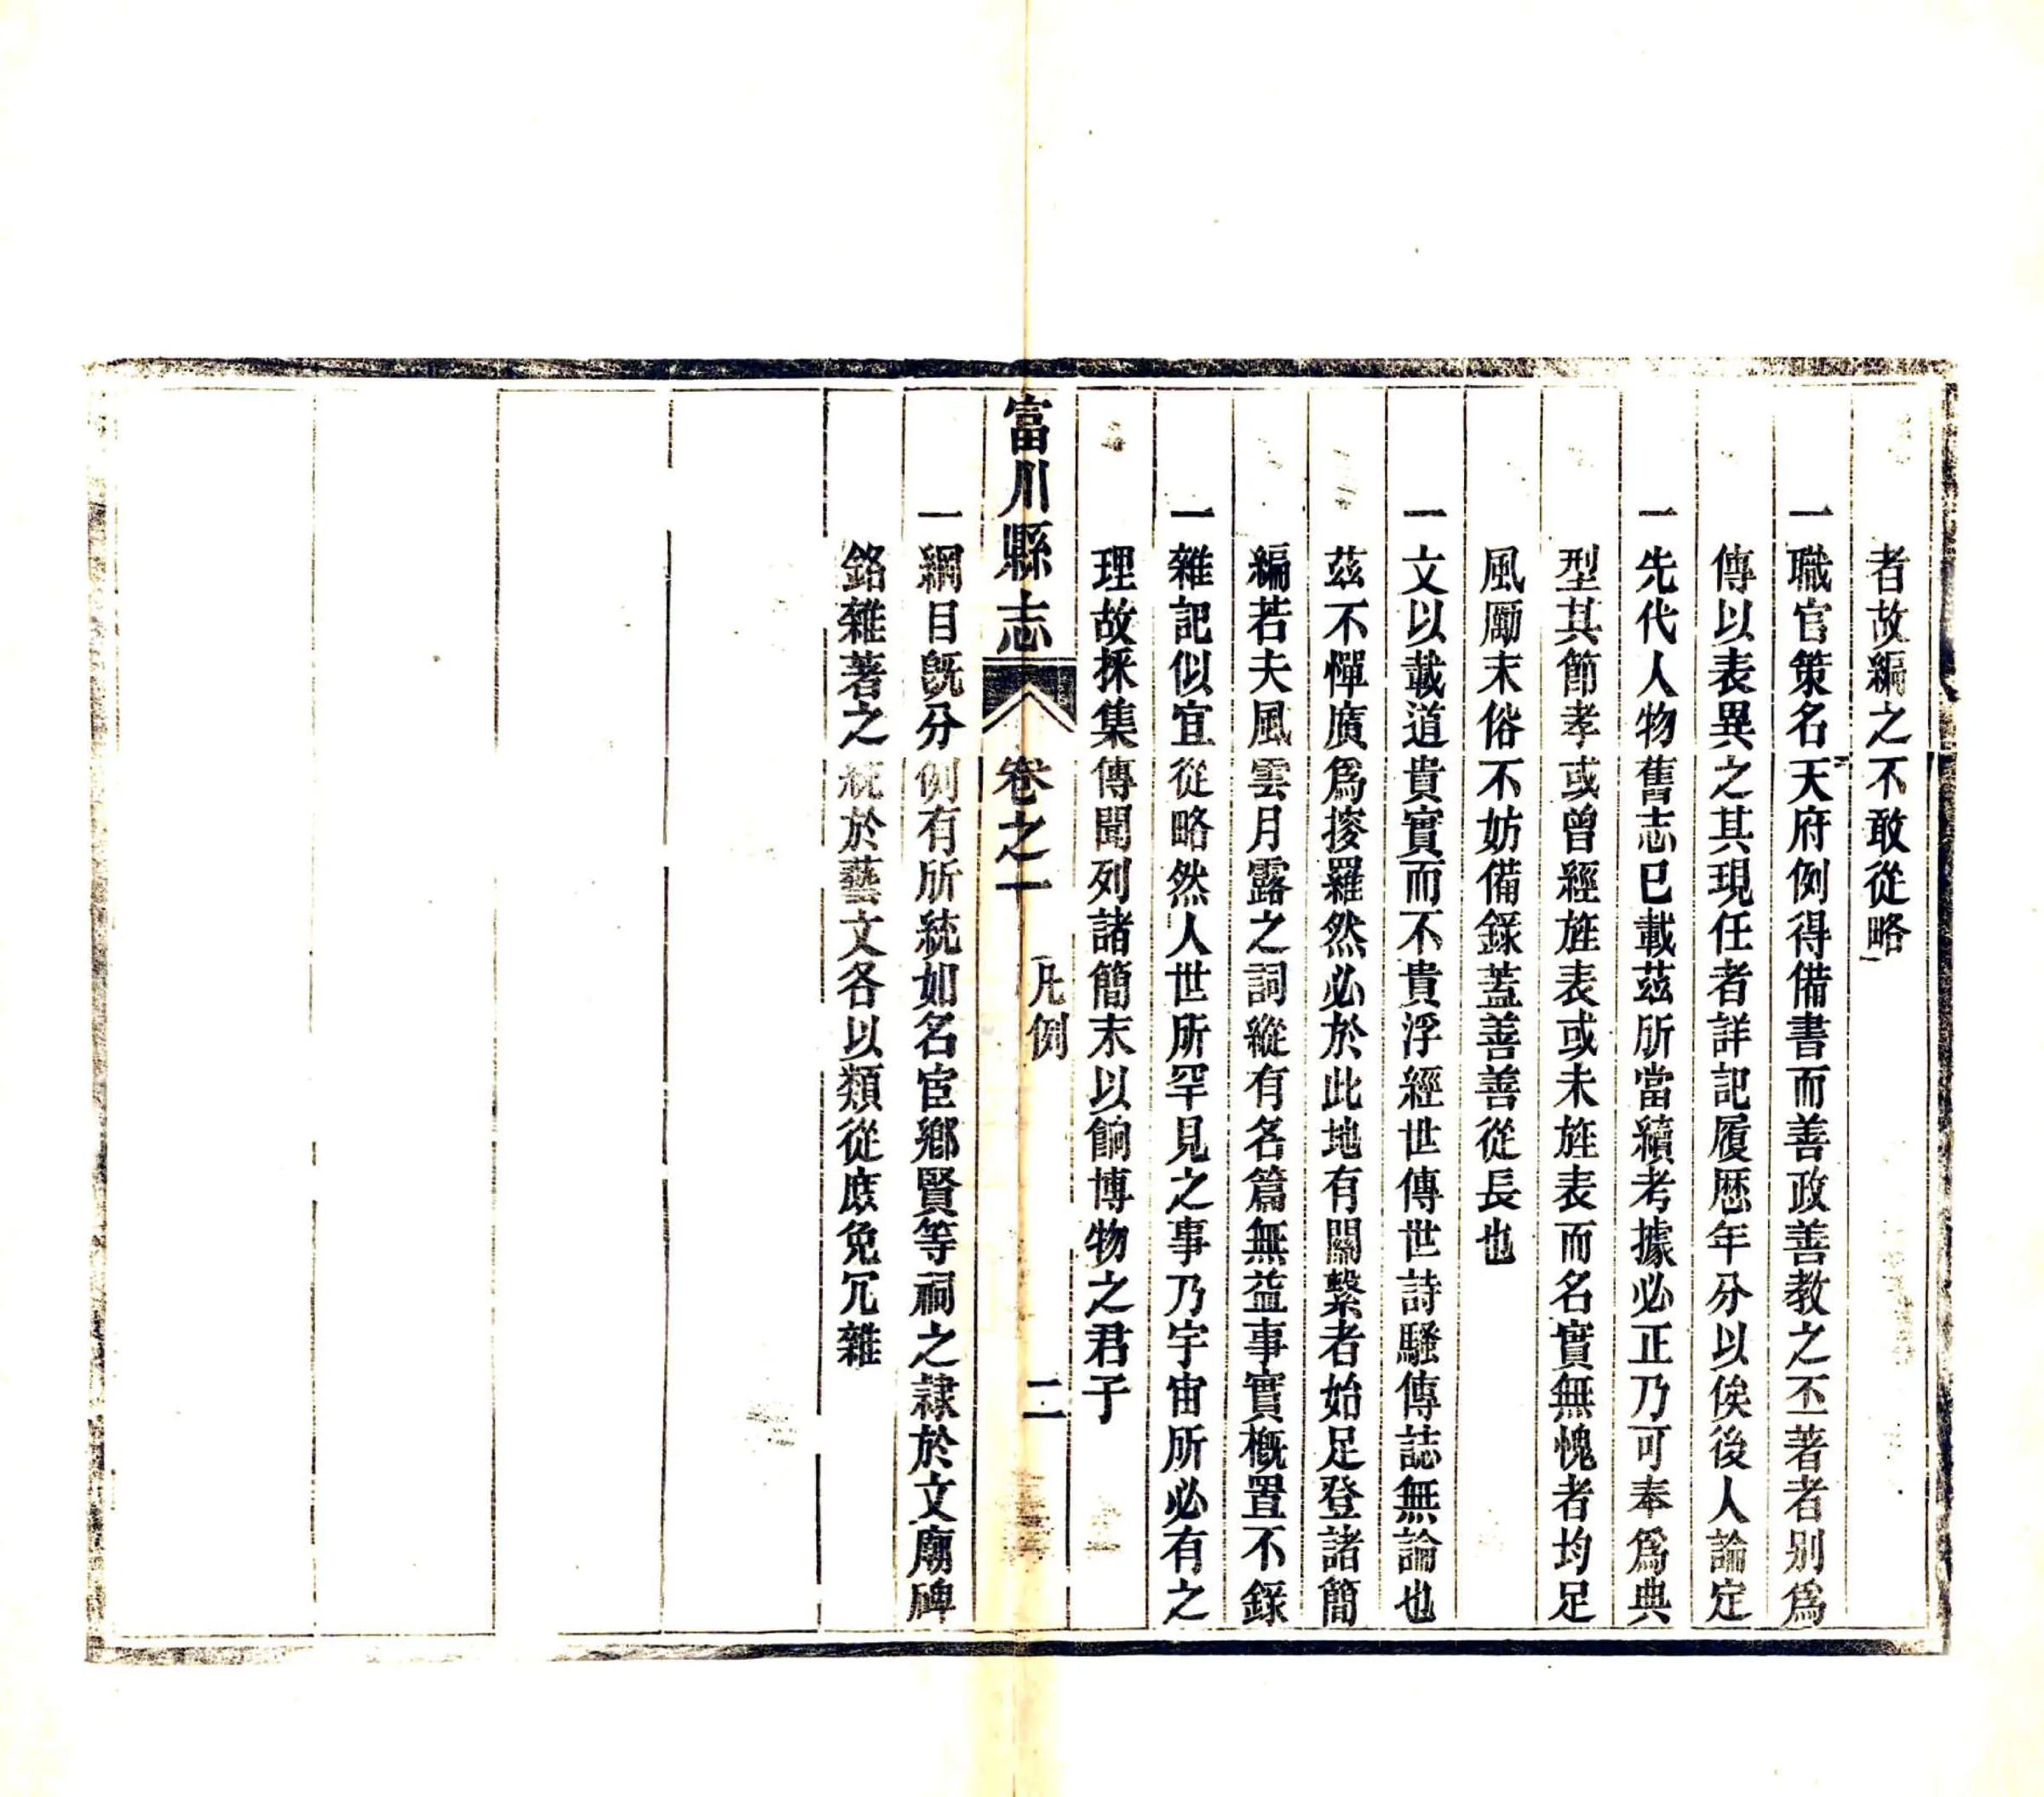 者故編之不敢從略
一職官策名天府例得備書而善政善教之丕著者別爲
傳以表異之其現任者詳記履歷年分以俟後人論定
一先代人物舊志已載茲所當續考據必正乃可奉爲典
型其節孝或曾經旌表或未旌表而名實無愧者均足
風勵末俗不妨備錄蓋善善從長也
一文以載道貴實而不貴浮經世傳世詩騷傳誌無論也
茲不憚廣爲搜羅然必於此地有關繫者始足登諸簡
編若夫風雲月露之詞縱有名篇無益事實槪置不錄
一雜記似宜從略然人世所罕見之事乃宇宙所必有之
理故採集傳聞列諸簡末以餉博物之君子
富川縣志 卷之一 凡例 二
一綱目旣分例有所統如名宦鄕賢等祠之隷於文廟碑
銘雜著之統於藝文各以類從庶免冗雜